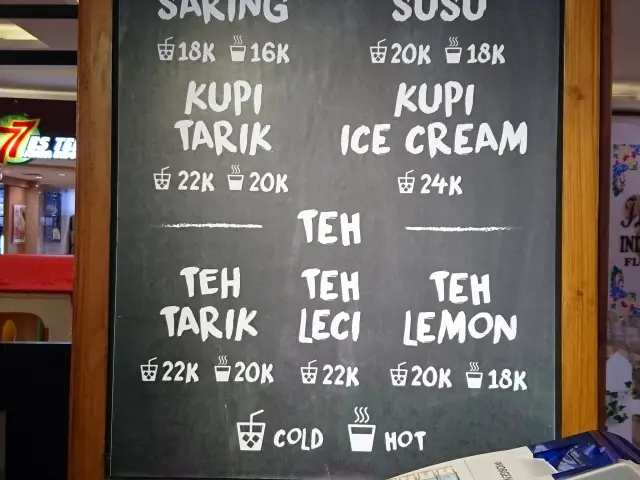 SARING SUSU
18K 16K 20K 18K
KUPI KUPI
TARIK ICE CREAM
22K 20K 24K
TEH
TEH TEH TEH
TARIK LECI LEMON
22K 20K 22K 20K 18K
COLD HOT
77